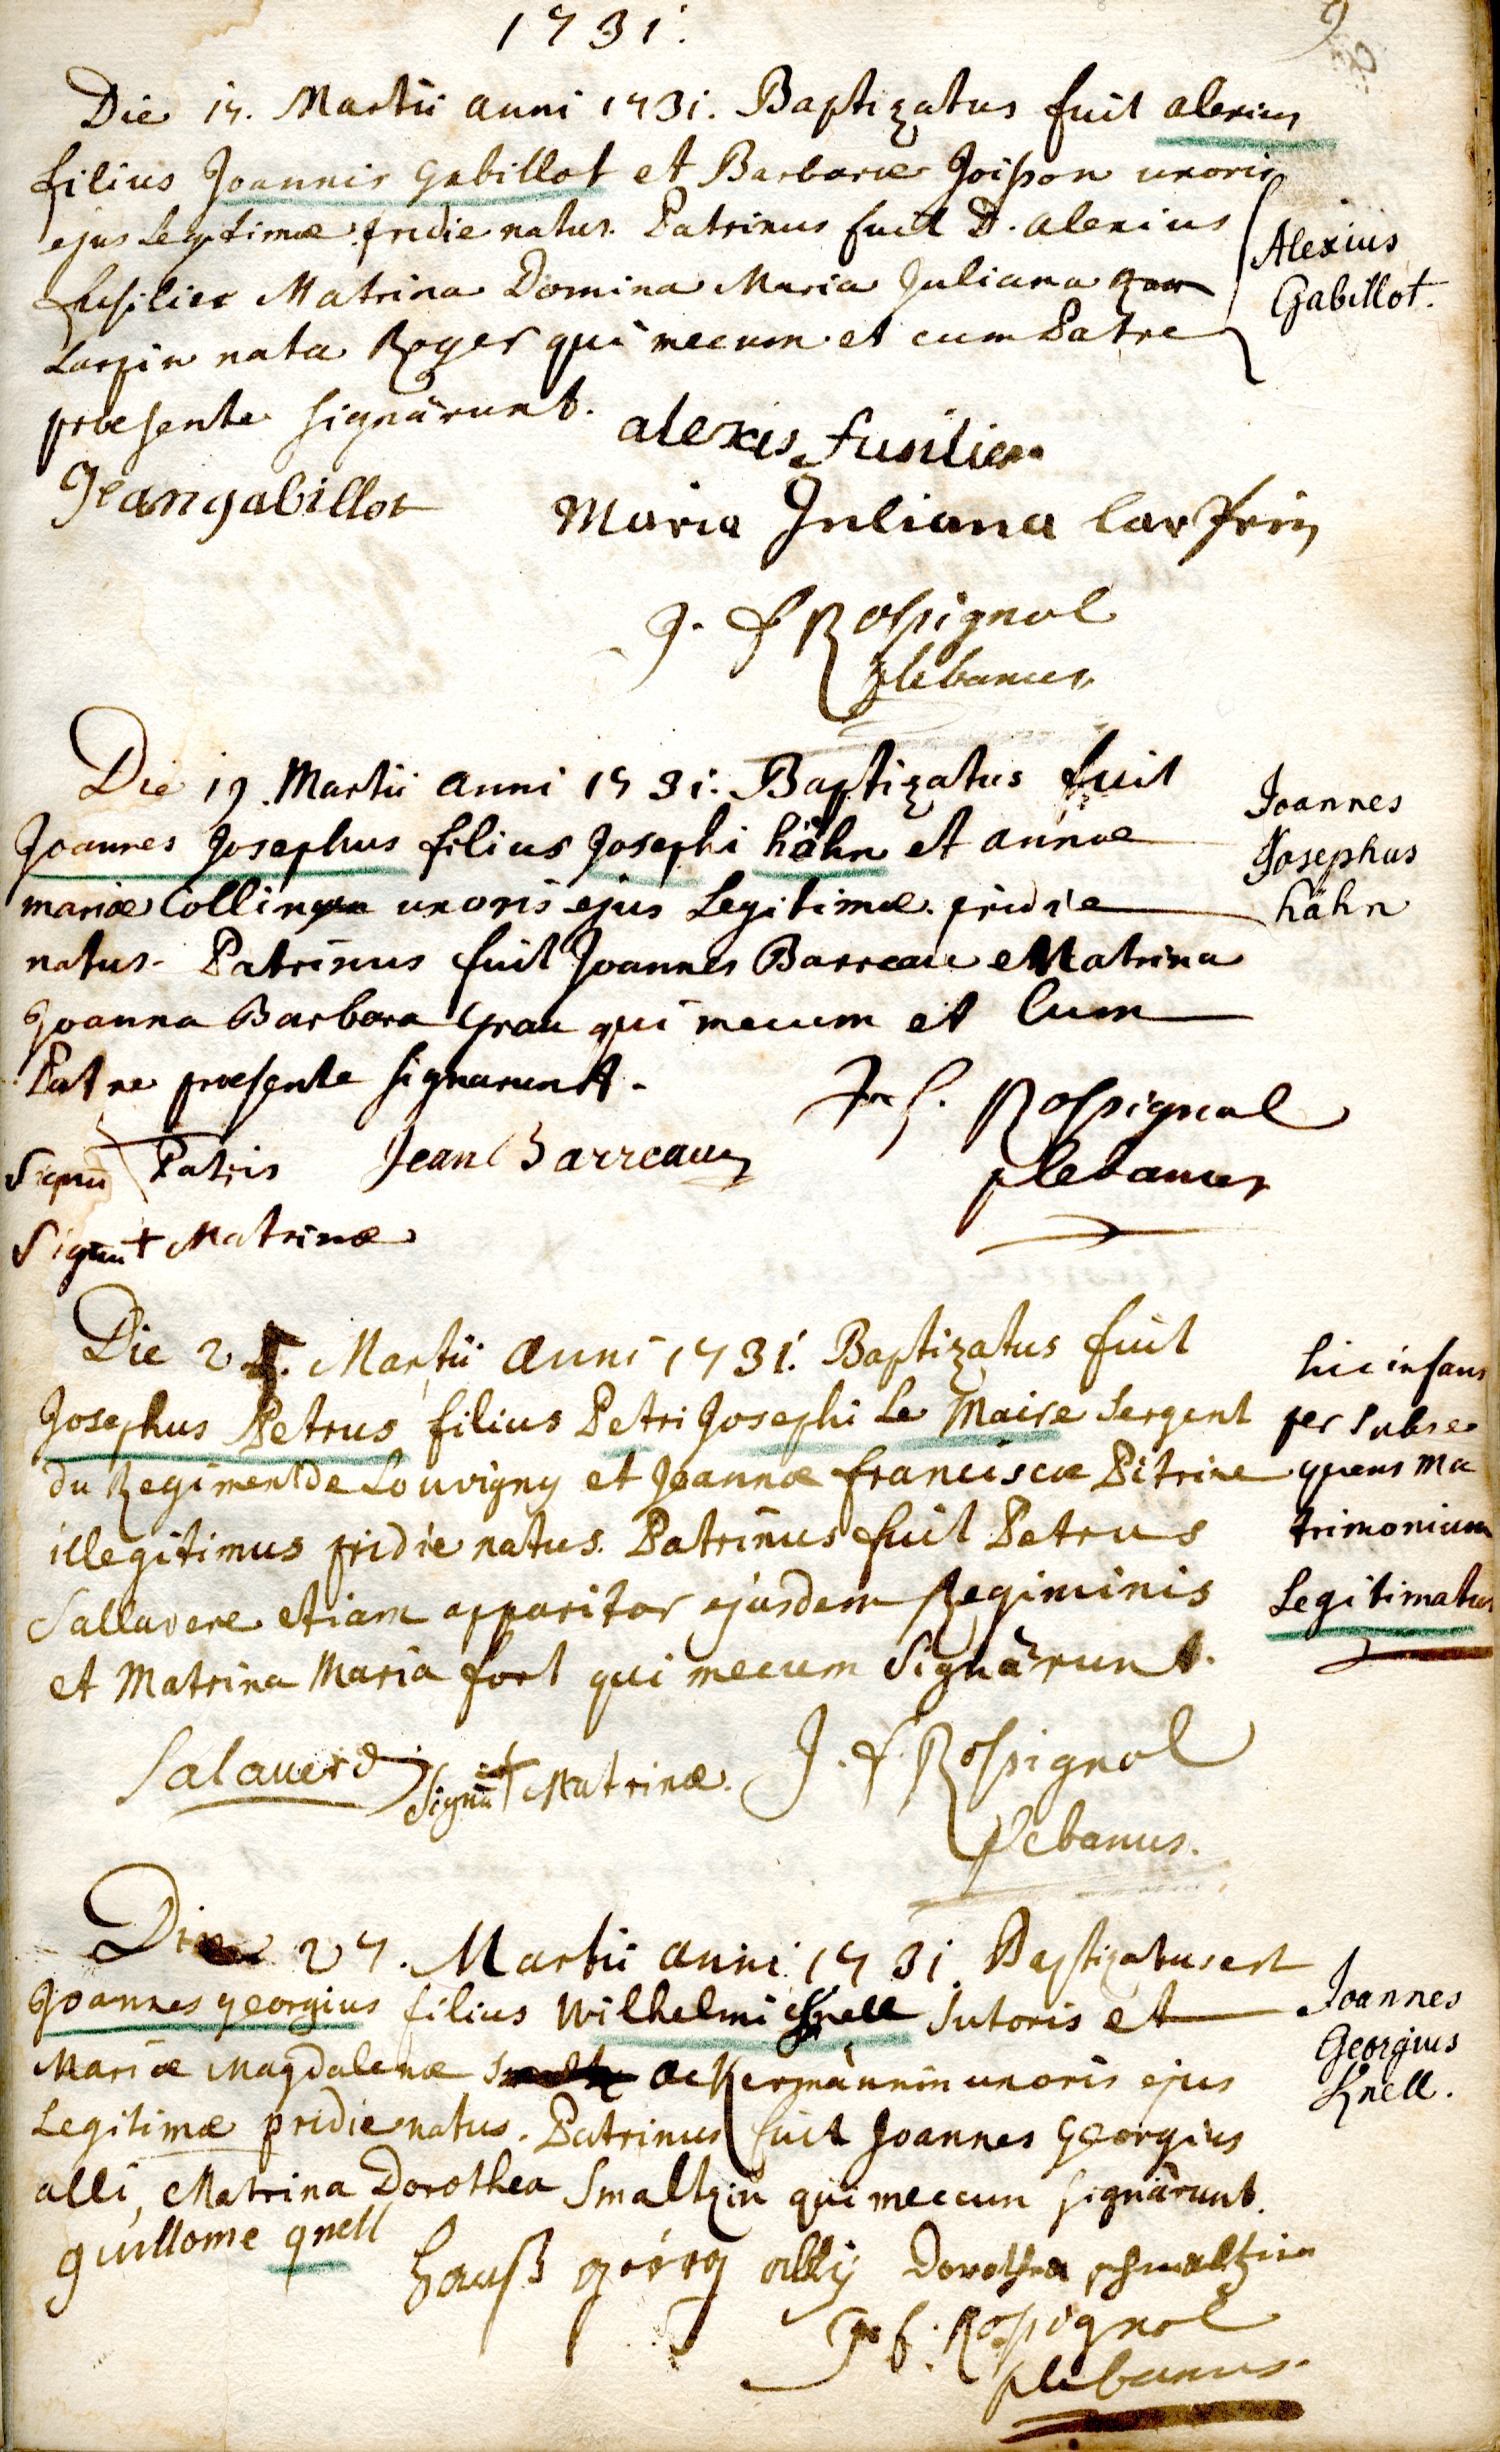 1731.
9
Die 17. Martii anni 1731. Baptizatus fuit alexius
filius Joannis Gabillot et Barbaræ Joisson uxoris
ejus Legitimæ pridie natus. Patrinus fuit D. alexius
fusilier Matrina Domina Maria Juliana
Larzin nata Roger qui mecum et cum Patre
præsente signârunt.
Alexius
Gabillot.
alexis fusilier
Jean gabillot
Maria Juliana
J. f Rossignol
plebanus
Die 19. Martii anni 1731. Baptizatus fuit
Joannes Josephus filius Josephi hähn et annæ
mariæ Collin uxoris ejus Legitimæ pridie
natus. Patrinus fuit Joannes Barreau et Matrina
Joanna Barbara Grau qui mecum et cum
Patre præsente signarunt.
Joannes
Josephus
hähn
J. f. Rossignol
plebanus
Signū Patris Jean Barreau
Signū + Matrinæ
Die 25. Martii anni 1731. Baptizatus fuit
Josephus Petrus filius Petri Josephi Le Maire Sergent
du Regiment de Louvigny et Joannæ franciscæ Pitrine
illegitimus pridie natus. Patrinus fuit Petrus
Sallavere etiam apparitor ejusdem Regiminis
et Matrina Maria fort qui mecum Signârunt.
hic infans
per subse
quens Ma
trimonium
Legitimatus
Salauerd Signū + Matrinæ. J. f. Rossignol
plebanus.
Die 27. Martii anni 1731. Baptizatus est
Joannes georgius filius Wilhelmi Knell Sutoris et
Mariæ Magdalenæ ackermännin uxoris ejus
Legitimæ pridie natus. Patrinus fuit Joannes Georgius
alli, Matrina Dorothea Smaltzin qui meccum signârunt.
Joannes
Georgius
Knell.
guillome gnell
Hanß görg alliÿ Dorothea schmaltzin
J. f. Rossignol
plebanus.